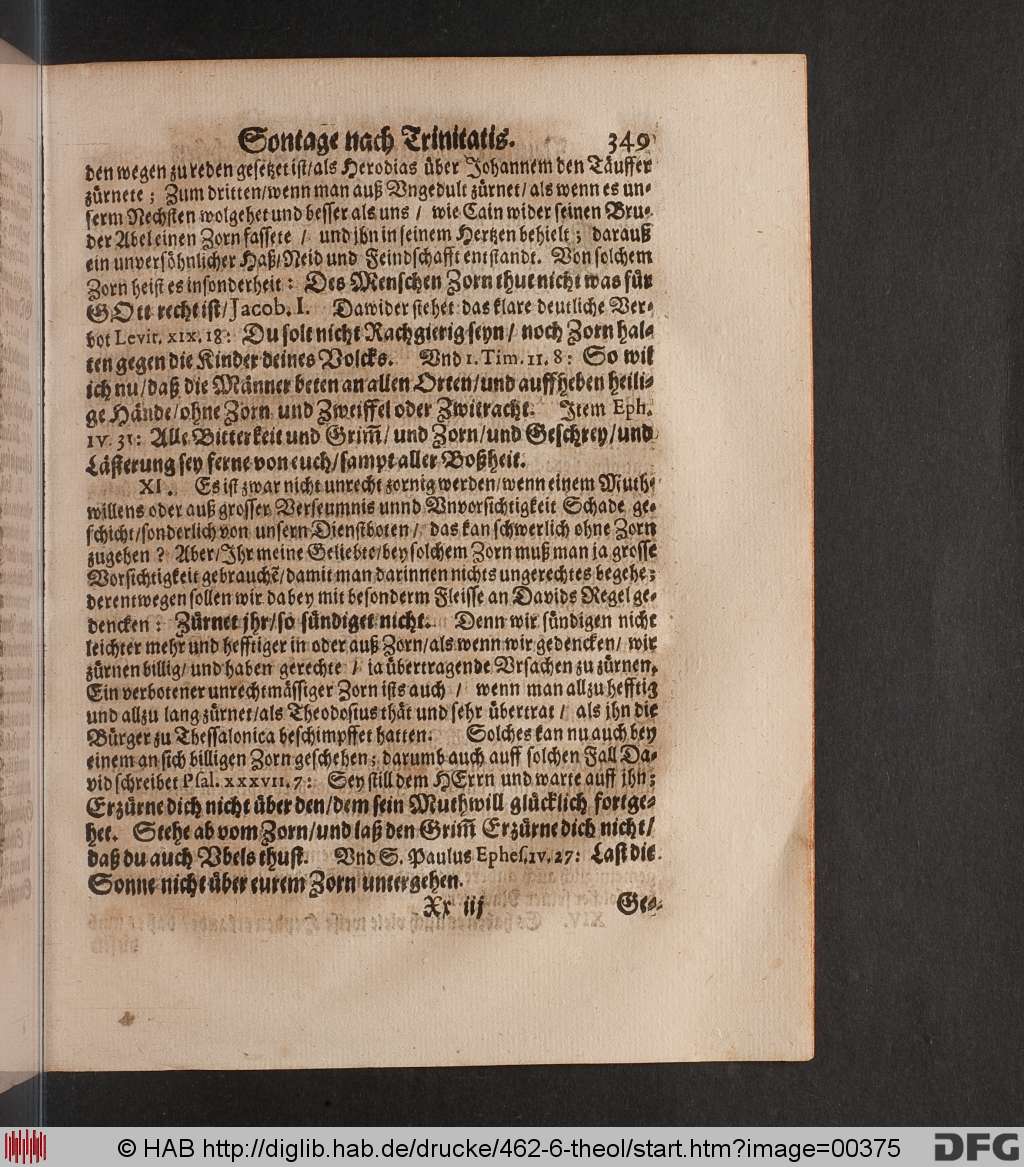 Sontage nach Trinitatis. 349
den wegen zu reden gesetzet ist/als Herodias über Johannem den Täuffer
zürnete; Zum dritten/wenn man auß Vngedult zürnet/als wenn es un-
serm Nechsten wolgehet und besser als uns / wie Cain wider seinen Bru-
der Abel einen Zorn fassete / und jhn in seinem Hertzen behielt; darauß
ein unversöhnlicher Haß/Neid und Feindschafft entstandt. Von solchem
Zorn heist es insonderheit: Des Menschen Zorn thut nicht was für
GOtt recht ist/Jacob. I. Dawider stehet das klare deutliche Ver-
bot Levit. XIX. 18: Du solt nicht Rachgierig seyn/ noch Zorn hal-
ten gegen die Kinder deines Volcks. Vnd 1. Tim. II. 8: So wil
ich nu/daß die Männer beten an allen Orten/und auffheben heili-
ge Hände/ohne Zorn und Zweiffel oder Zwitracht. Item Eph.
IV. 31: Alle Bitterkeit und Grim̃/und Zorn/und Geschrey/und
Lästerung sey ferne von euch/sampt aller Boßheit.
XI. Es ist zwar nicht unrecht zornig werden/wenn einem Muth-
willens oder auß grosser Verseumnis unnd Vnvorsichtigkeit Schade ge-
schicht/sonderlich von unsern Dienstboten/ das kan schwerlich ohne Zorn
zugehen? Aber/Jhr meine Geliebte/bey solchem Zorn muß man ja grosse
Vorsichtigkeit gebrauchẽ/damit man darinnen nichts ungerechtes begehe;
derentwegen sollen wir dabey mit besonderm Fleisse an Davids Regel ge-
dencken: Zürnet jhr/so sündiget nicht. Denn wir sündigen nicht
leichter mehr und hefftiger in oder auß Zorn/als wenn wir gedencken/ wir
zürnen billig/und haben gerechte / ja übertragende Vrsachen zu zürnen.
Ein verbotener unrechtmässiger Zorn ists auch / wenn man allzu hefftig
und allzu lang zürnet/als Theodosius thät und sehr übertrat / als jhn die
Bürger zu Thessalonica beschimpffet hatten. Solches kan nu auch bey
einem an sich billigen Zorn geschehen; darumb auch auff solchen Fall Da-
vid schreibet Psal. XXXVII. 7: Sey still dem HErrn und warte auff ihn;
Erzürne dich nicht über den/dem sein Muthwill glücklich fortge-
het. Stehe ab vom Zorn/und laß den Grim̃ Erzürne dich nicht/
daß du auch Vbels thust. Vnd S. Paulus Ephes. IV. 27: Last die
Sonne nicht über eurem Zorn untergehen.
Xx iij Ge-
© HAB http://diglib.hab.de/drucke/462-6-theol/start.htm?image=00375 DFG